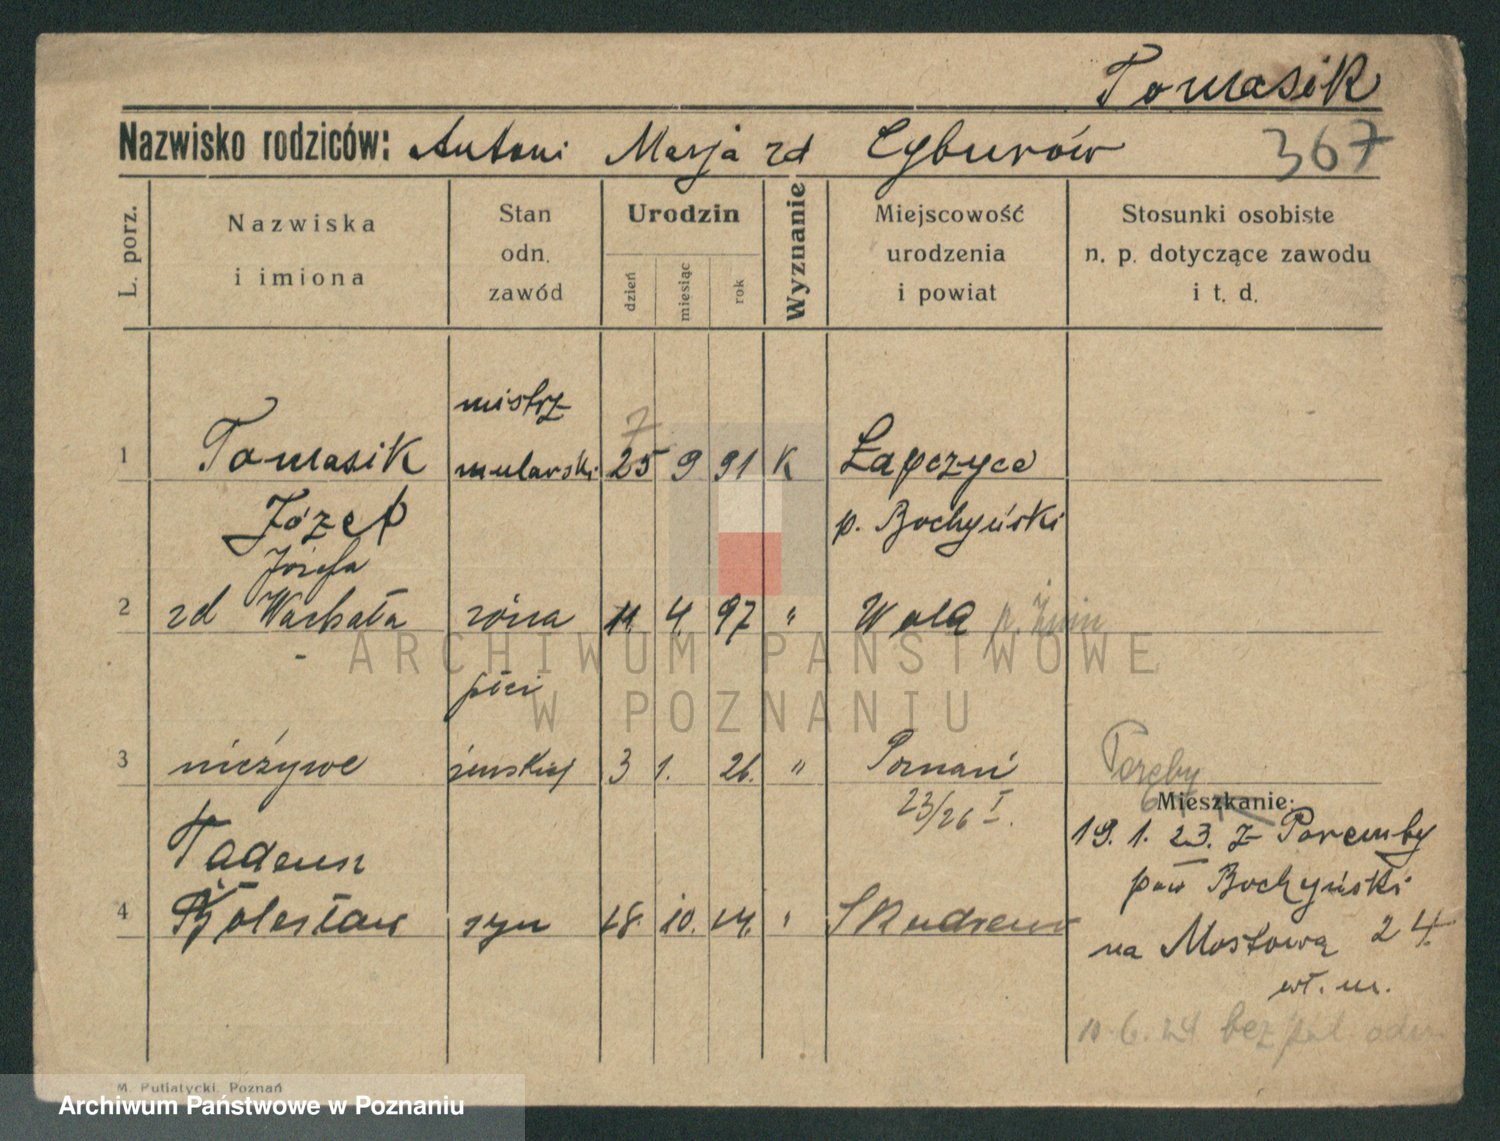 Tomasik
Nazwisko rodziców: Antoni Marja zd Cyburów
367
L. porz.
Nazwiska i imiona
Stan odn. zawód
Urodzin
dzień
miesiąc
rok
Wyznanie
Miejscowość urodzenia i powiat
Stosunki osobiste n. p. dotyczące zawodu i t. d.
mistrz
7
1 Tomasik mularski 25 9 91 K Łapczyce
Józef p. Bochyński
Józefa
2 zd Wachała żona 11. 4. 97 " Wola p. Żnin
płci
3 nieżywe żeńskiej 3 1. 26. " Poznań
23/26 I.
Poręby
Mieszkanie:
Tadeusz
19. 1. 23. z Poremby
pow Bochyński
4 Bolesław syn 18. 10. 14. "
na Mostową 24.
wł. m.
10.6.24 bez pol.
M. Putiatycki, Poznań
ARCHIWUM PAŃSTWOWE
W POZNANIU
Archiwum Państwowe w Poznaniu